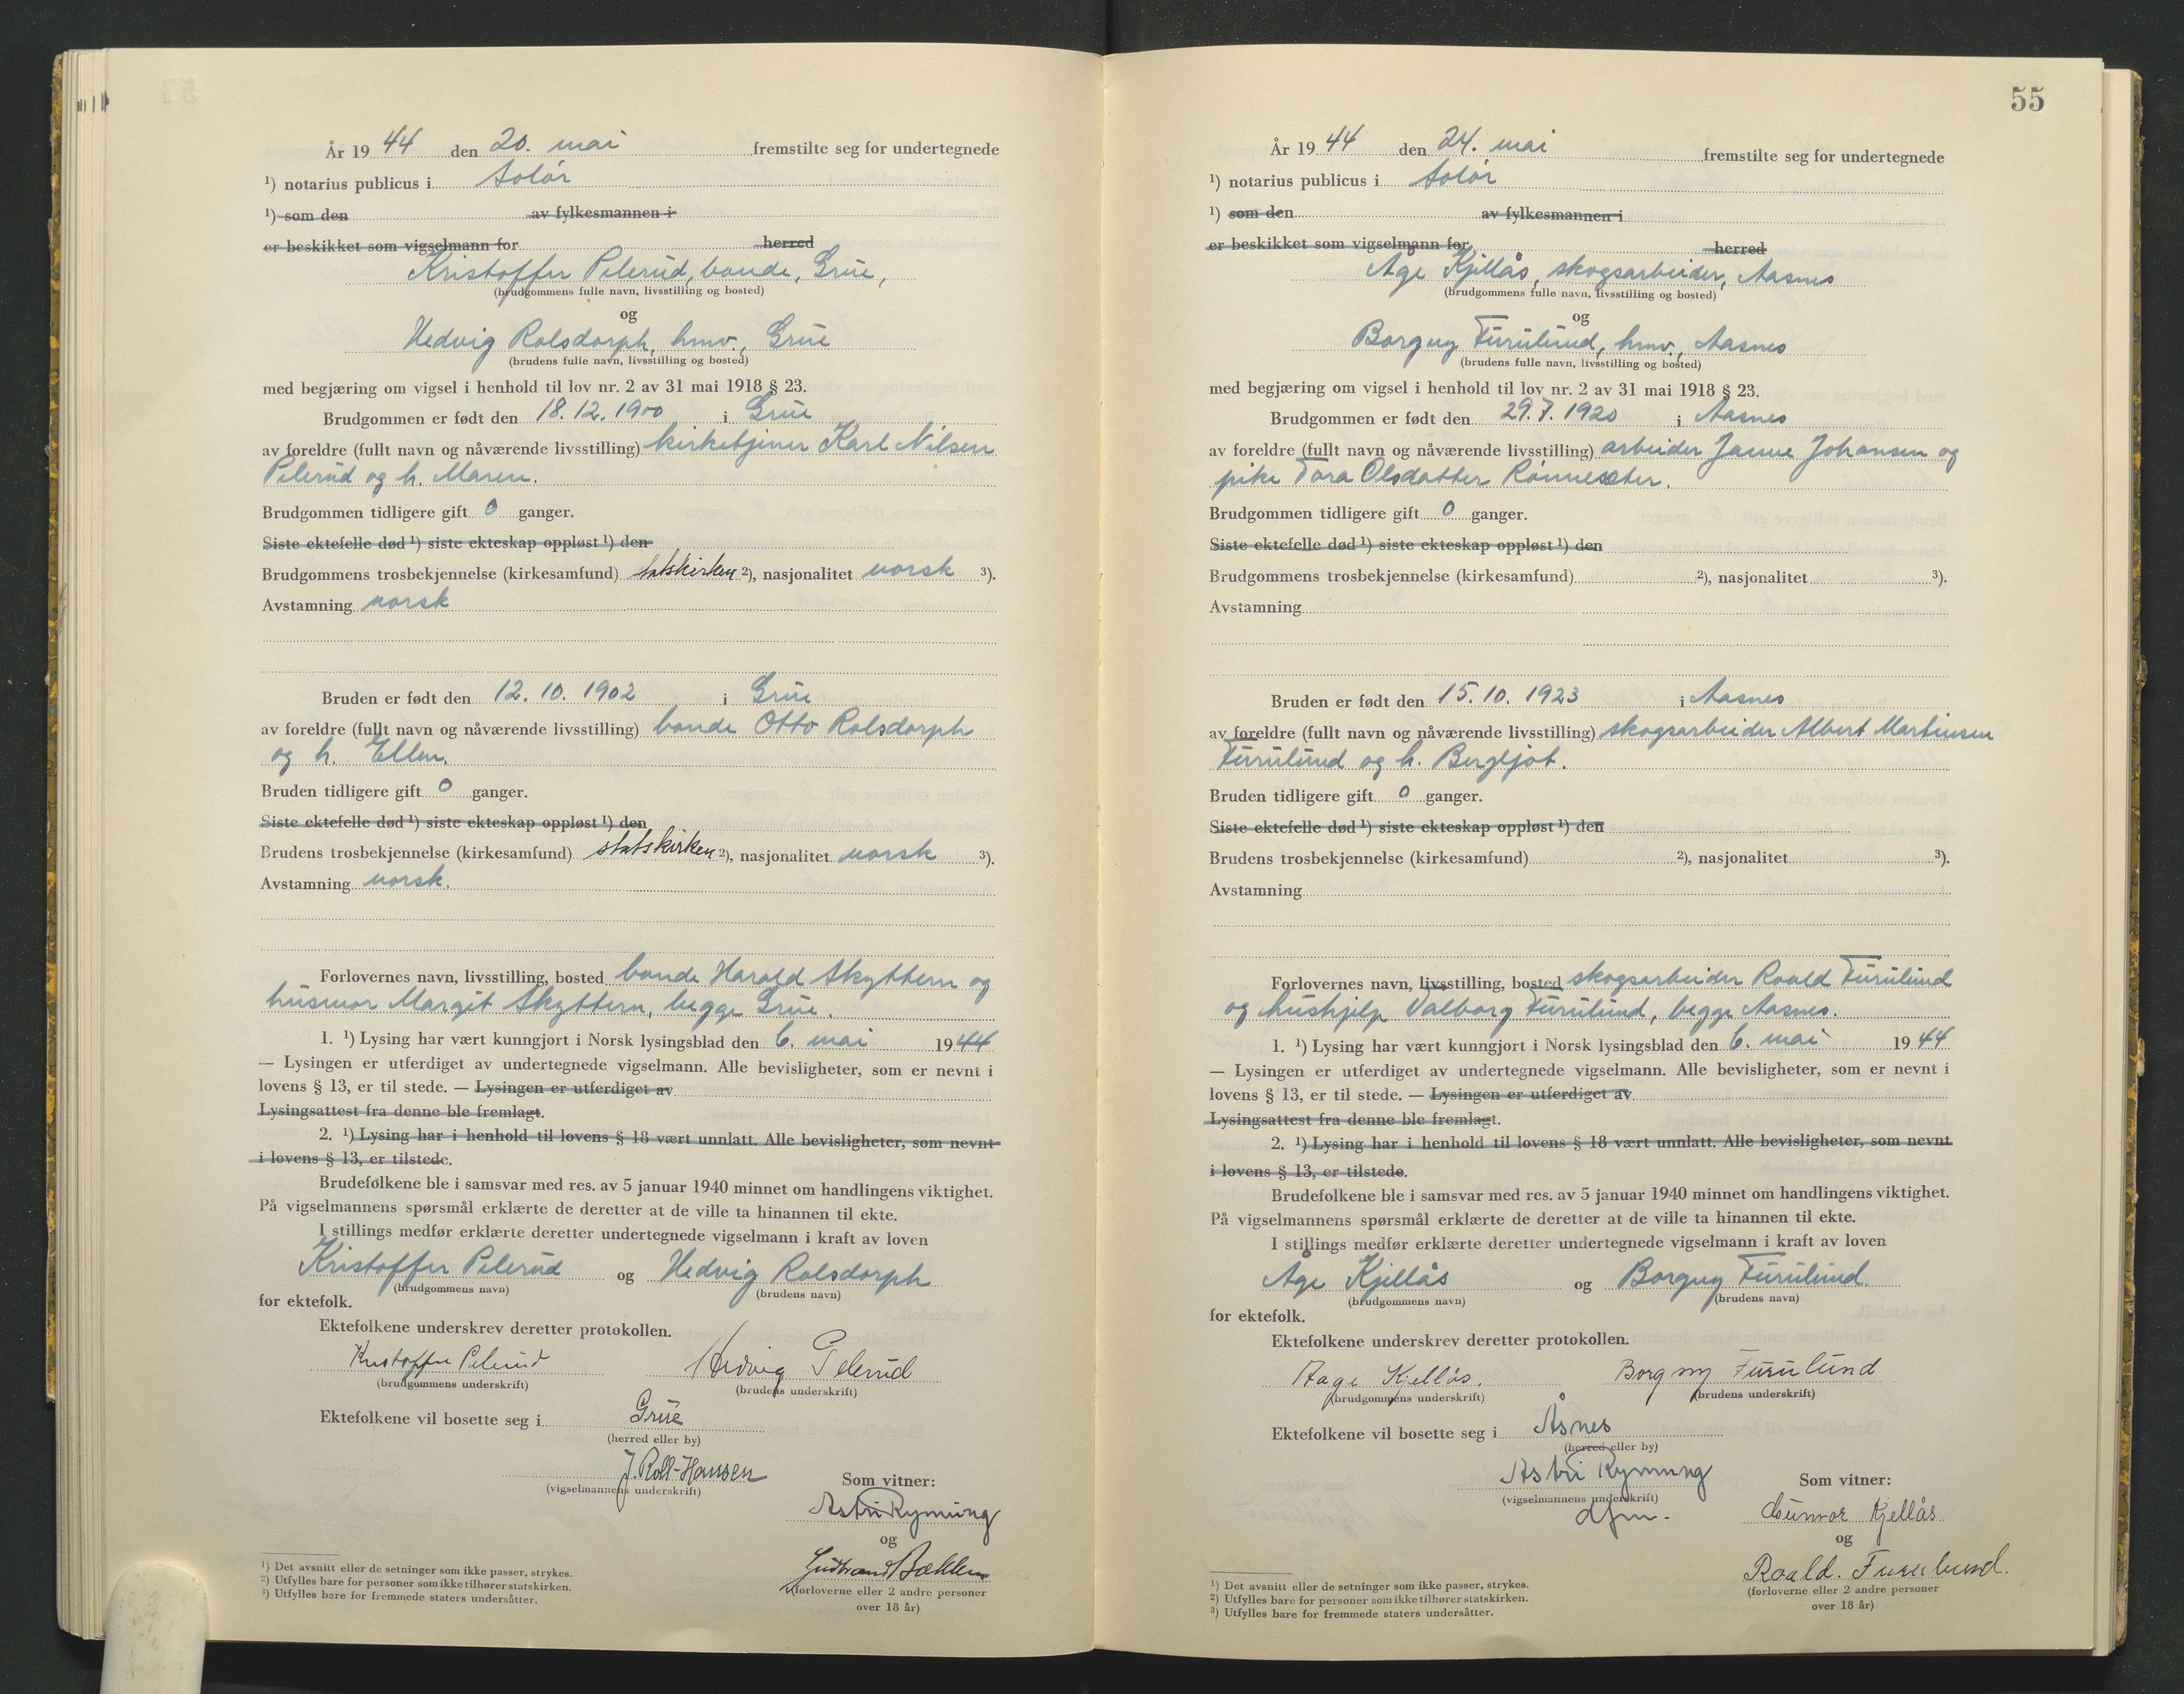 År 19 44 den 20. mai fremstilte seg for undertegnede
¹) notarius publicus i Solør
¹) som den av fylkesmannen i
er beskikket som vigselmann for herred
Kristoffer Pelerud, bonde, Grue,
(brudgommens fulle navn, livsstilling og bosted)
og
Hedvig Rolsdorph, hmv., Grue
(brudens fulle navn, livsstilling og bosted)
med begjæring om vigsel i henhold til lov nr. 2 av 31 mai 1918 § 23.
Brudgommen er født den 18. 12. 1900 i Grue
av foreldre (fullt navn og nåværende livsstilling) kirketjener Karl Nilsen
Pelerud og h. Maren.
Brudgommen tidligere gift 0 ganger.
Siste ektefelle død ¹) siste ekteskap oppløst ¹) den
Brudgommens trosbekjennelse (kirkesamfund) statskirken ²), nasjonalitet norsk ³).
Avstamning norsk
Bruden er født den 12. 10. 1902 i Grue
av foreldre (fullt navn og nåværende livsstilling) bonde Otto Rolsdorph
og h. Ellen.
Bruden tidligere gift 0 ganger.
Siste ektefelle død ¹) siste ekteskap oppløst ¹) den
Brudens trosbekjennelse (kirkesamfund) statskirken ²), nasjonalitet norsk ³).
Avstamning norsk.
Forlovernes navn, livsstilling, bosted bonde Harald Skyttern og
husmor Margit Skyttern, begge Grue.
1. ¹) Lysing har vært kunngjort i Norsk lysingsblad den 6. mai 19 44
— Lysingen er utferdiget av undertegnede vigselmann. Alle bevisligheter, som er nevnt i
lovens § 13, er til stede. — Lysingen er utferdiget av
Lysingsattest fra denne ble fremlagt.
2. ¹) Lysing har i henhold til lovens § 18 vært unnlatt. Alle bevisligheter, som nevnt
i lovens § 13, er tilstede.
Brudefolkene ble i samsvar med res. av 5 januar 1940 minnet om handlingens viktighet.
På vigselmannens spørsmål erklærte de deretter at de ville ta hinannen til ekte.
I stillings medfør erklærte deretter undertegnede vigselmann i kraft av loven
Kristoffer Pelerud og Hedvig Rolsdorph
(brudgommens navn) (brudens navn)
for ektefolk.
Ektefolkene underskrev deretter protokollen.
Kristoffer Pelerud Hedvig Pelerud
(brudgommens underskrift) (brudens underskrift)
Ektefolkene vil bosette seg i Grue
(herred eller by)
J. Roll-Hansen
(vigselmannens underskrift)
Som vitner:
Astri Rymung
og
Gudbrand
(forloverne eller 2 andre personer
over 18 år)
¹) Det avsnitt eller de setninger som ikke passer, strykes.
²) Utfylles bare for personer som ikke tilhører statskirken.
³) Utfylles bare for fremmede staters undersåtter.
55
År 19 44 den 24. mai fremstilte seg for undertegnede
¹) notarius publicus i Solør
¹) som den av fylkesmannen i
er beskikket som vigselmann for herred
Åge Kjellås, skogsarbeider, Aasnes
(brudgommens fulle navn, livsstilling og bosted)
og
Borgny Furulund, hmv., Aasnes
(brudens fulle navn, livsstilling og bosted)
med begjæring om vigsel i henhold til lov nr. 2 av 31 mai 1918 § 23.
Brudgommen er født den 29. 7. 1920 i Aasnes
av foreldre (fullt navn og nåværende livsstilling) arbeider Janne Johansen og
pike Tora Olsdatter Rønneseter.
Brudgommen tidligere gift 0 ganger.
Siste ektefelle død ¹) siste ekteskap oppløst ¹) den
Brudgommens trosbekjennelse (kirkesamfund) ²), nasjonalitet ³).
Avstamning
Bruden er født den 15. 10. 1923 i Aasnes
av foreldre (fullt navn og nåværende livsstilling) skogsarbeider Albert Martinsen
Furulund og h. Bergljot.
Bruden tidligere gift 0 ganger.
Siste ektefelle død ¹) siste ekteskap oppløst ¹) den
Brudens trosbekjennelse (kirkesamfund) ²), nasjonalitet ³).
Avstamning
Forlovernes navn, livsstilling, bosted skogsarbeider Roald Furulund
og hushjelp Valborg Furulund, begge Aasnes.
1. ¹) Lysing har vært kunngjort i Norsk lysingsblad den 6. mai 19 44
— Lysingen er utferdiget av undertegnede vigselmann. Alle bevisligheter, som er nevnt i
lovens § 13, er til stede. — Lysingen er utferdiget av
Lysingsattest fra denne ble fremlagt.
2. ¹) Lysing har i henhold til lovens § 18 vært unnlatt. Alle bevisligheter, som nevnt
i lovens § 13, er tilstede.
Brudefolkene ble i samsvar med res. av 5 januar 1940 minnet om handlingens viktighet.
På vigselmannens spørsmål erklærte de deretter at de ville ta hinannen til ekte.
I stillings medfør erklærte deretter undertegnede vigselmann i kraft av loven
Åge Kjellås og Borgny Furulund
(brudgommens navn) (brudens navn)
for ektefolk.
Ektefolkene underskrev deretter protokollen.
Aage Kjellås. Borgny Furulund
(brudgommens underskrift) (brudens underskrift)
Ektefolkene vil bosette seg i Åsnes
(herred eller by)
Astri Rymung
(vigselmannens underskrift)
dfm.
Som vitner:
Gunvor Kjellås
og
Roald. Furulund.
(forloverne eller 2 andre personer
over 18 år)
¹) Det avsnitt eller de setninger som ikke passer, strykes.
²) Utfylles bare for personer som ikke tilhører statskirken.
³) Utfylles bare for fremmede staters undersåtter.